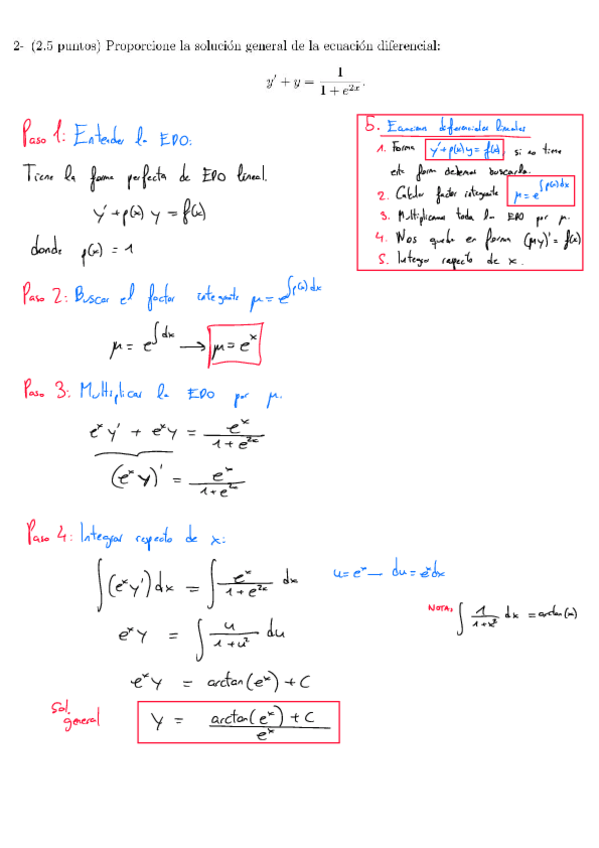 2- (2.5 puntos) Proporcione la solución general de la ecuación diferencial:
y' + y = 1/(1 + e^{2x}).
Paso 1: Entender la EDO:
Tiene la forma perfecta de EDO lineal.
y' + p(x) y = f(x)
donde p(x) = 1
5. Ecuacion diferenciales lineales
1. Forma y'+p(x)y = f(x), si no tiene
esta form debemos buscarla.
2. Calcular factor integrante μ = e^{∫p(x)dx}
3. Multiplicamos toda la EDO por μ.
4. Nos queda en forma (μy)' = f(x)
5. Integrar respecto de x.
Paso 2: Buscar el factor integrante μ = e^{∫p(x)dx}
μ = e^{∫dx} → μ = e^x
Paso 3: Multiplicar la EDO por μ.
e^x y' + e^x y = e^x/(1+e^{2x})
(e^x y)' = e^x/(1+e^{2x})
Paso 4: Integrar respecto de x:
∫(e^x y')dx = ∫ e^x/(1+e^{2x}) dx u = e^x — du = e^x dx
NOTA, ∫ 1/(1+x²) dx = arctan(x)
e^x y = ∫ u/(1+u²) du
e^x y = arctan(e^x) + C
Sol. general
y = (arctan(e^x) + C)/e^x